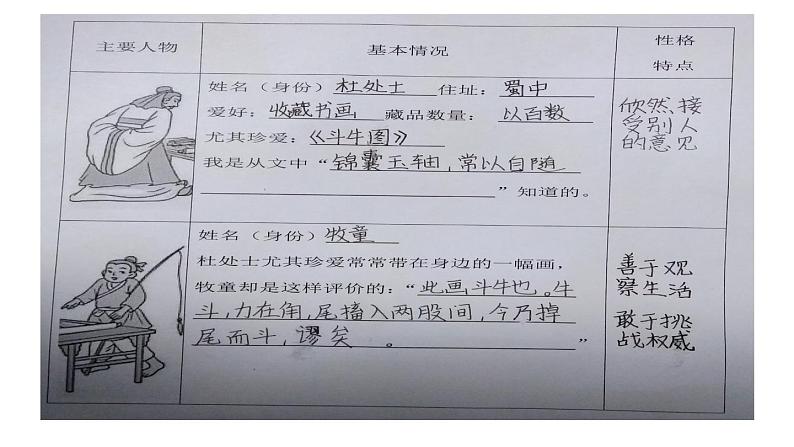 主要人物 基本情况 性格特点
姓名（身份）杜处士 住址：蜀中
爱好：收藏书画 藏品数量：以百数
尤其珍爱：《斗牛图》
我是从文中“锦囊玉轴，常以自随
”知道的。
欣然接
受别人
的意见
姓名（身份）牧童
杜处士尤其珍爱常常带在身边的一幅画，
牧童却是这样评价的：“此画斗牛也。牛
斗，力在角，尾搐入两股间，今乃掉
尾而斗，谬矣。”
善于观
察生活
敢于挑
战权威